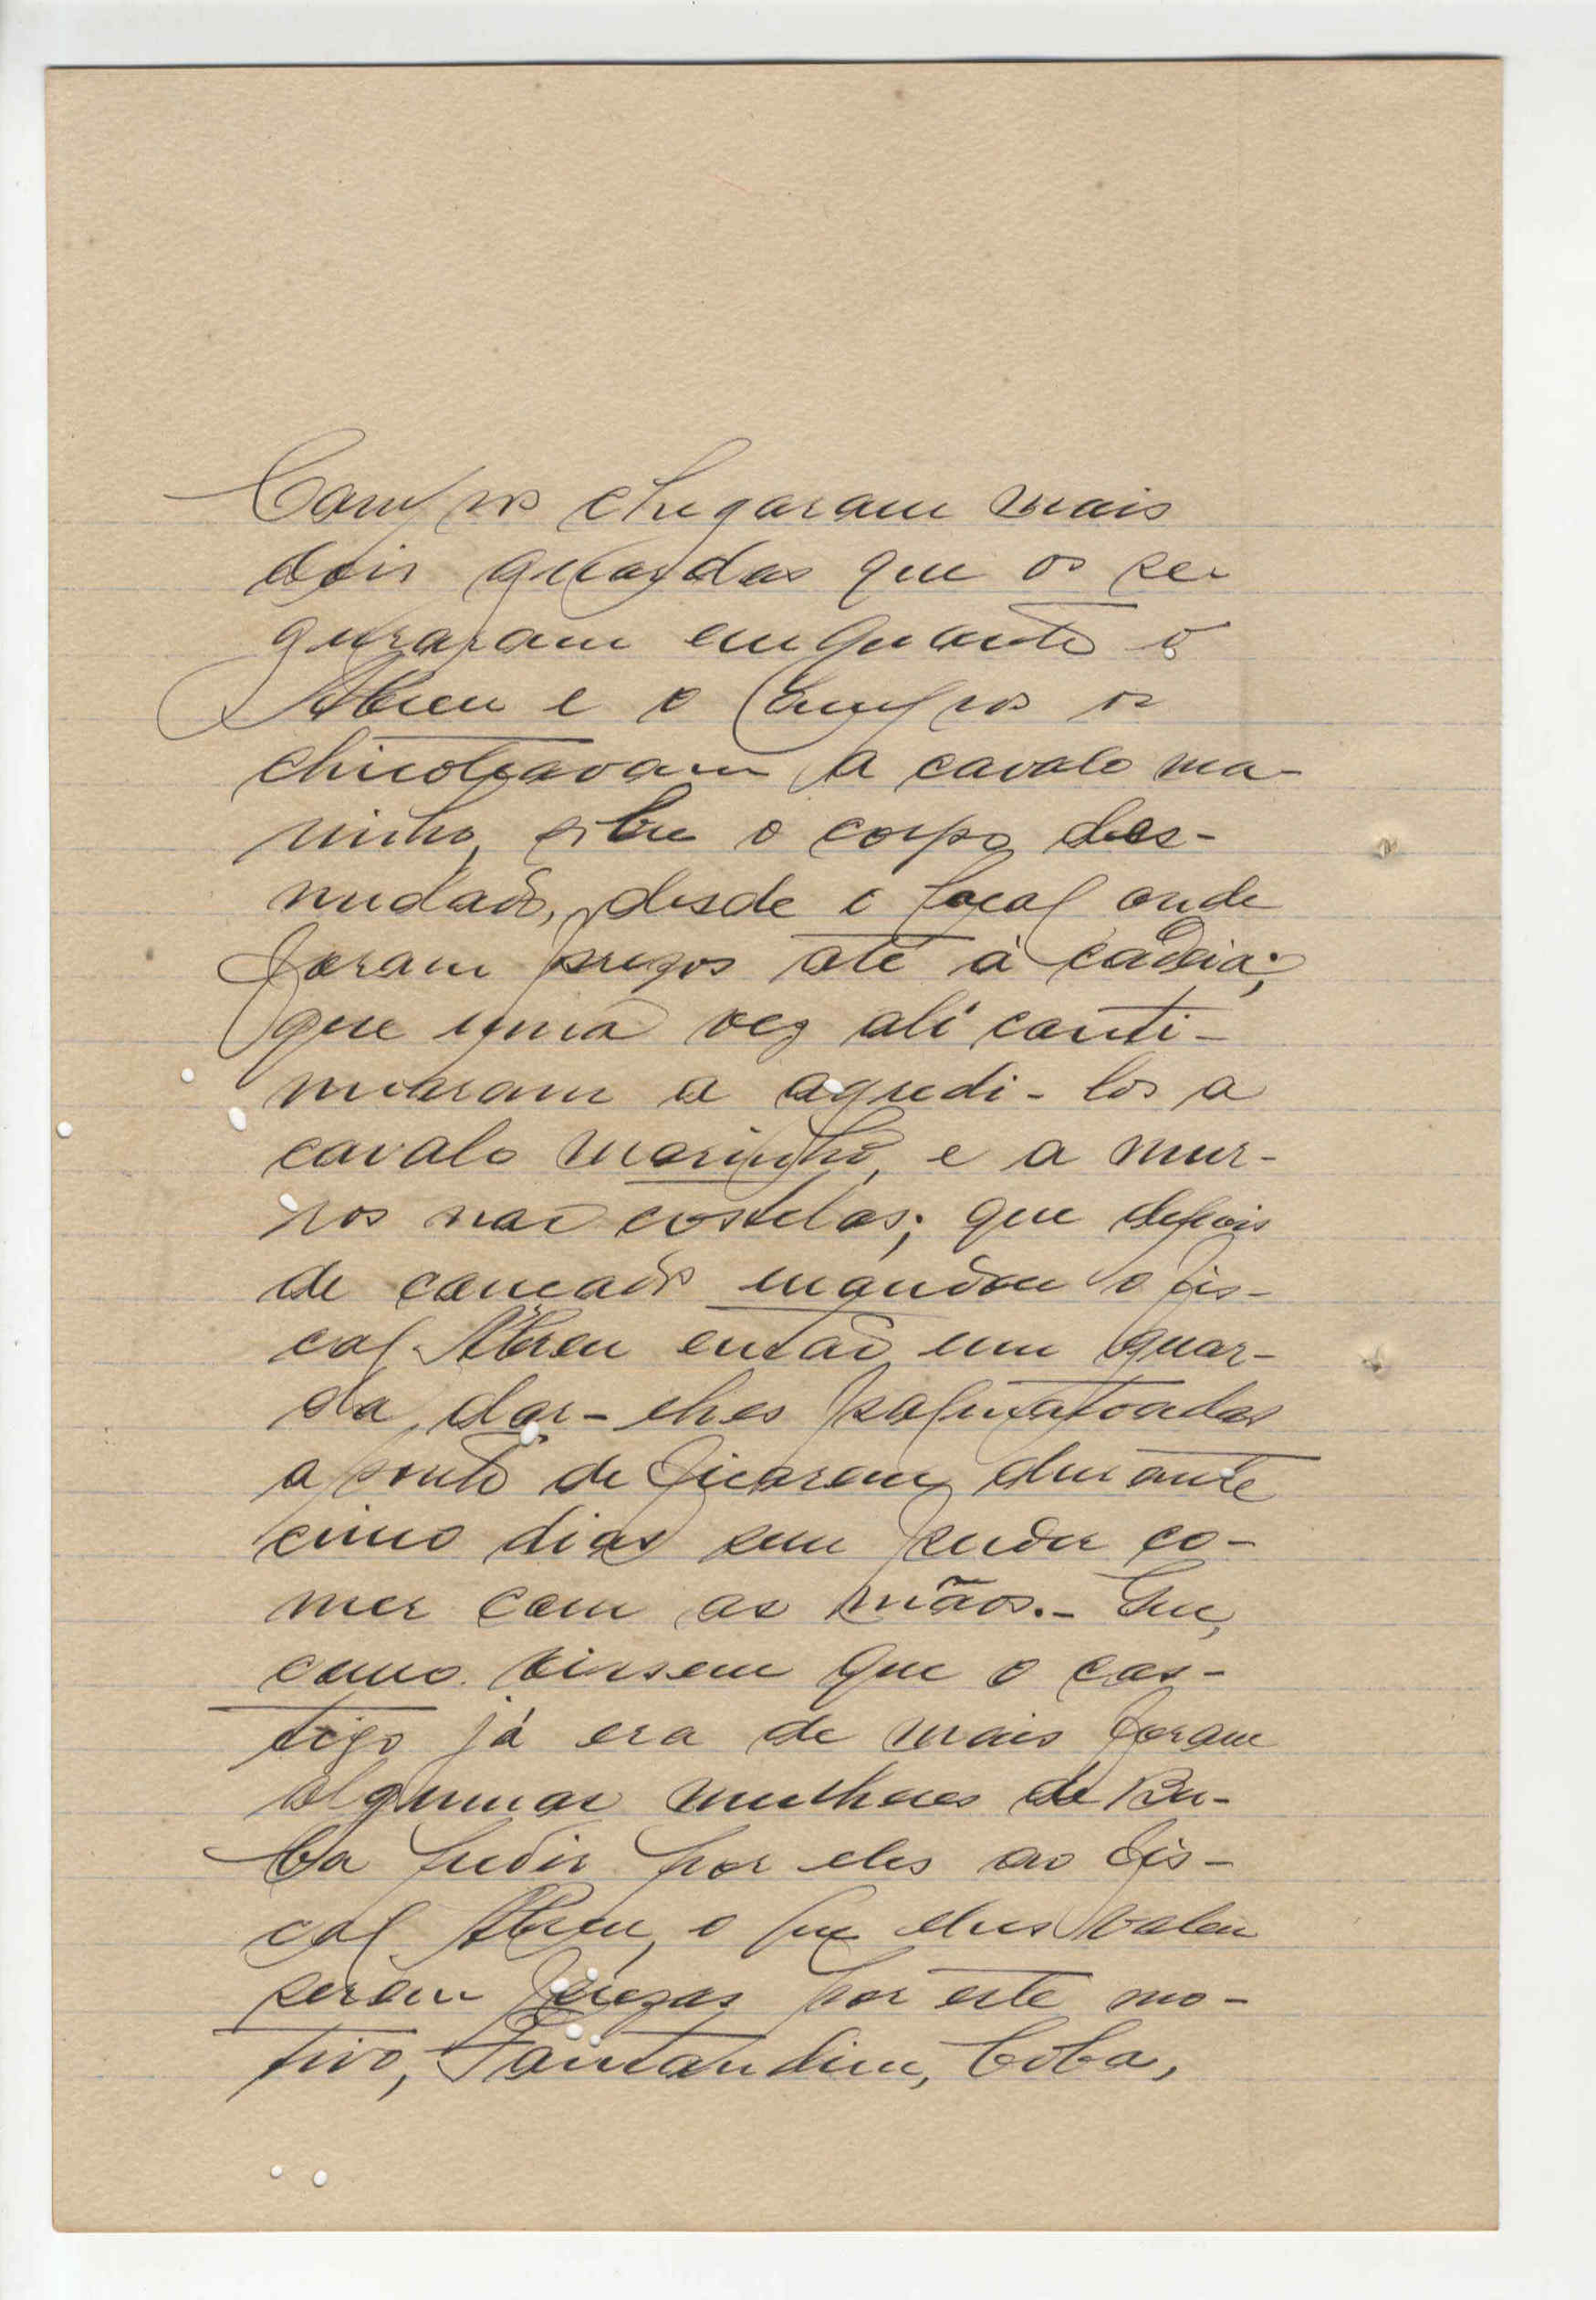 Campos chegaram mais
dois guardas que os se
guraram emquanto o
Abreu e o Campos os
chicoteavam a cavalo ma-
rinho, sobre o corpo des-
nudado, desde o local onde
foram presos até à cadeia;
que uma vez ali conti-
nuaram a agredi-los a
cavalo marinho, e a mur-
ros nas costelas; que depois
de cançados mandou o fis-
cal Abreu então um guar-
da dar-lhes palmatoadas
a ponto de ficarem durante
cinco dias sem poder co-
mer com as mãos.- Que,
como vissem que o cas-
tigo já era de mais foram
algumas mulheres de Bu-
ba pedir por eles ao fis-
cal Abreu, o que lhes valeu
serem presas por este mo-
tivo, Fantandim, Coba,